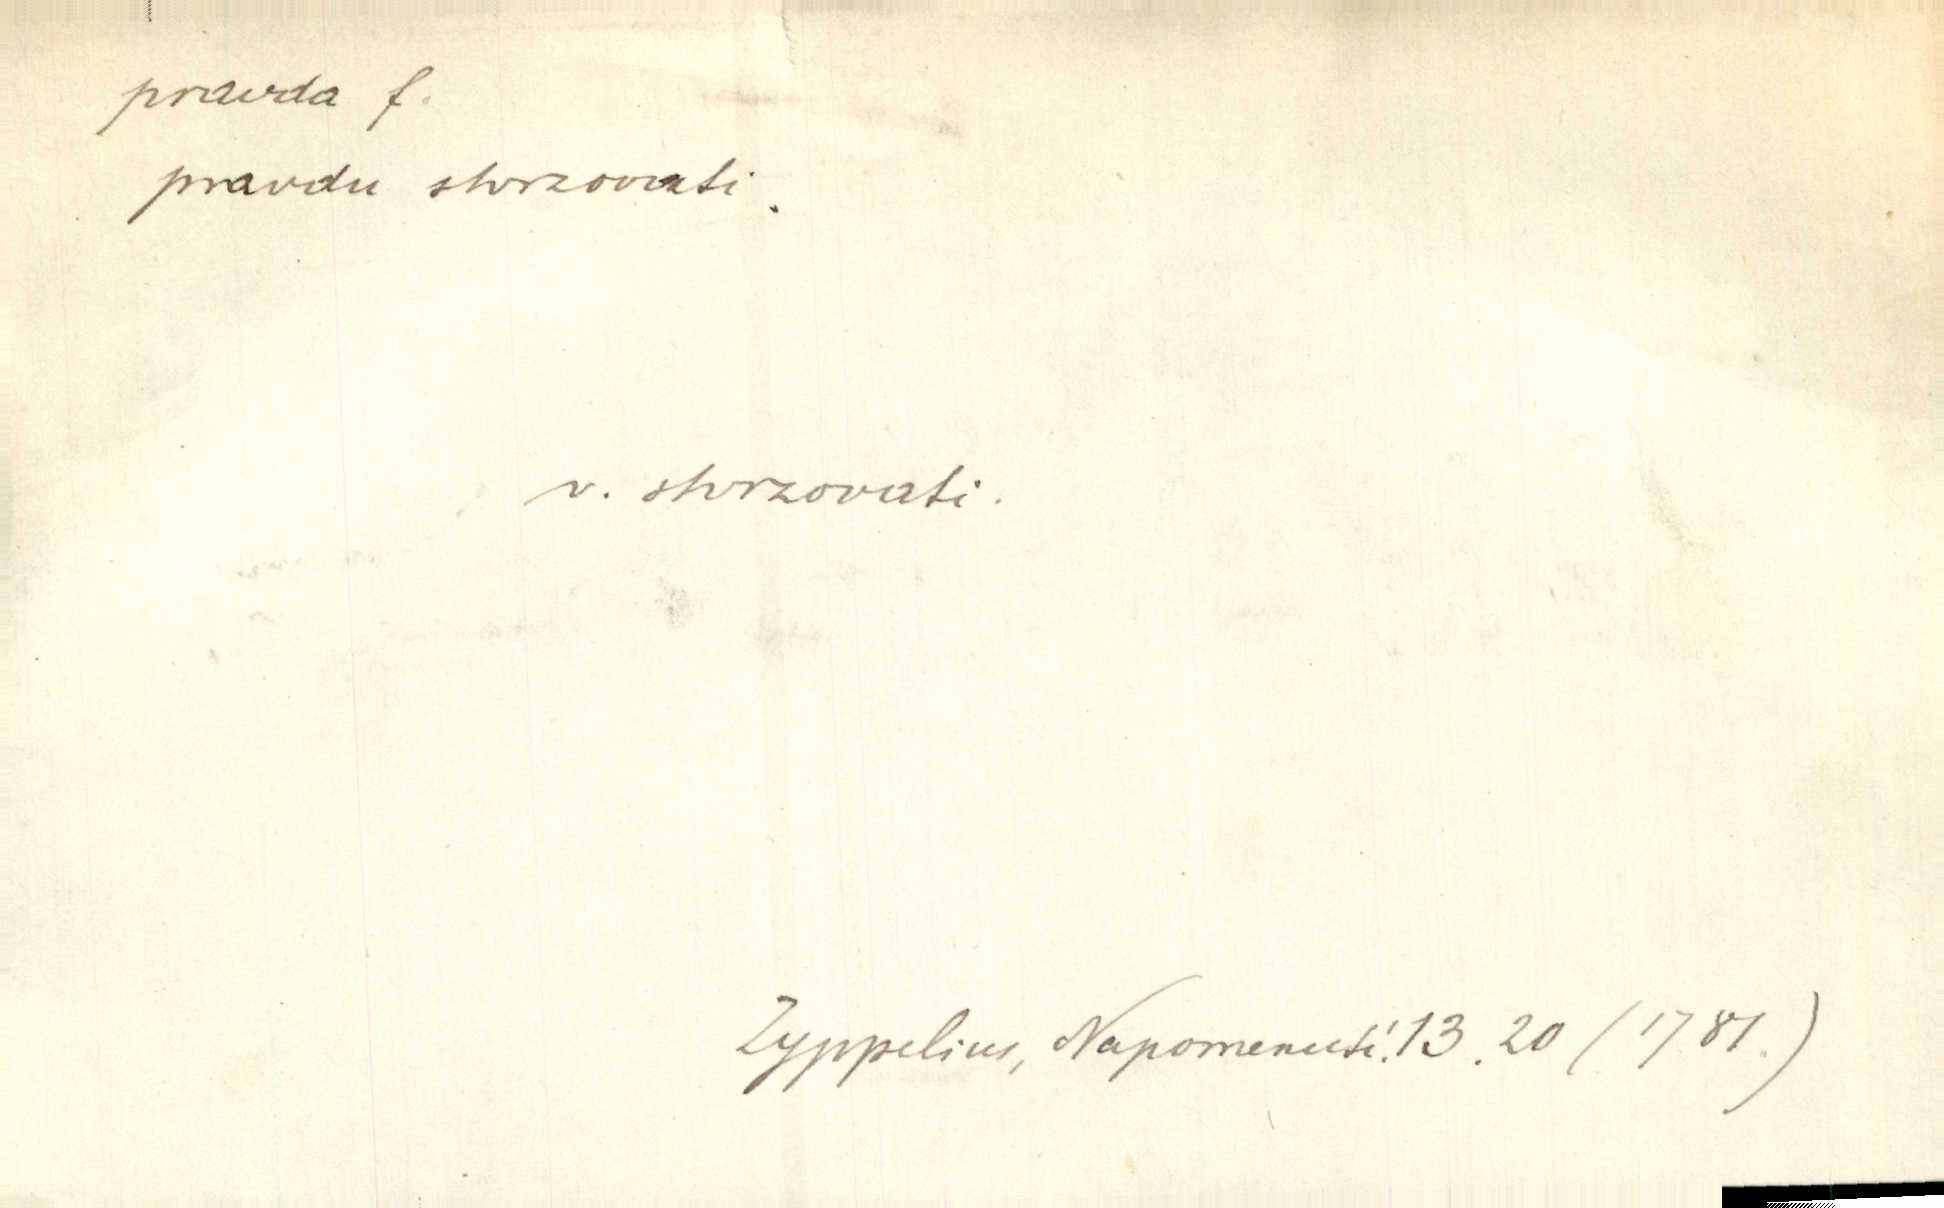 pravda f.
pravdu stvrzovati.
v. stvrzovati.
Zyppelius, Napomenutí. 13. 20 (1781.)